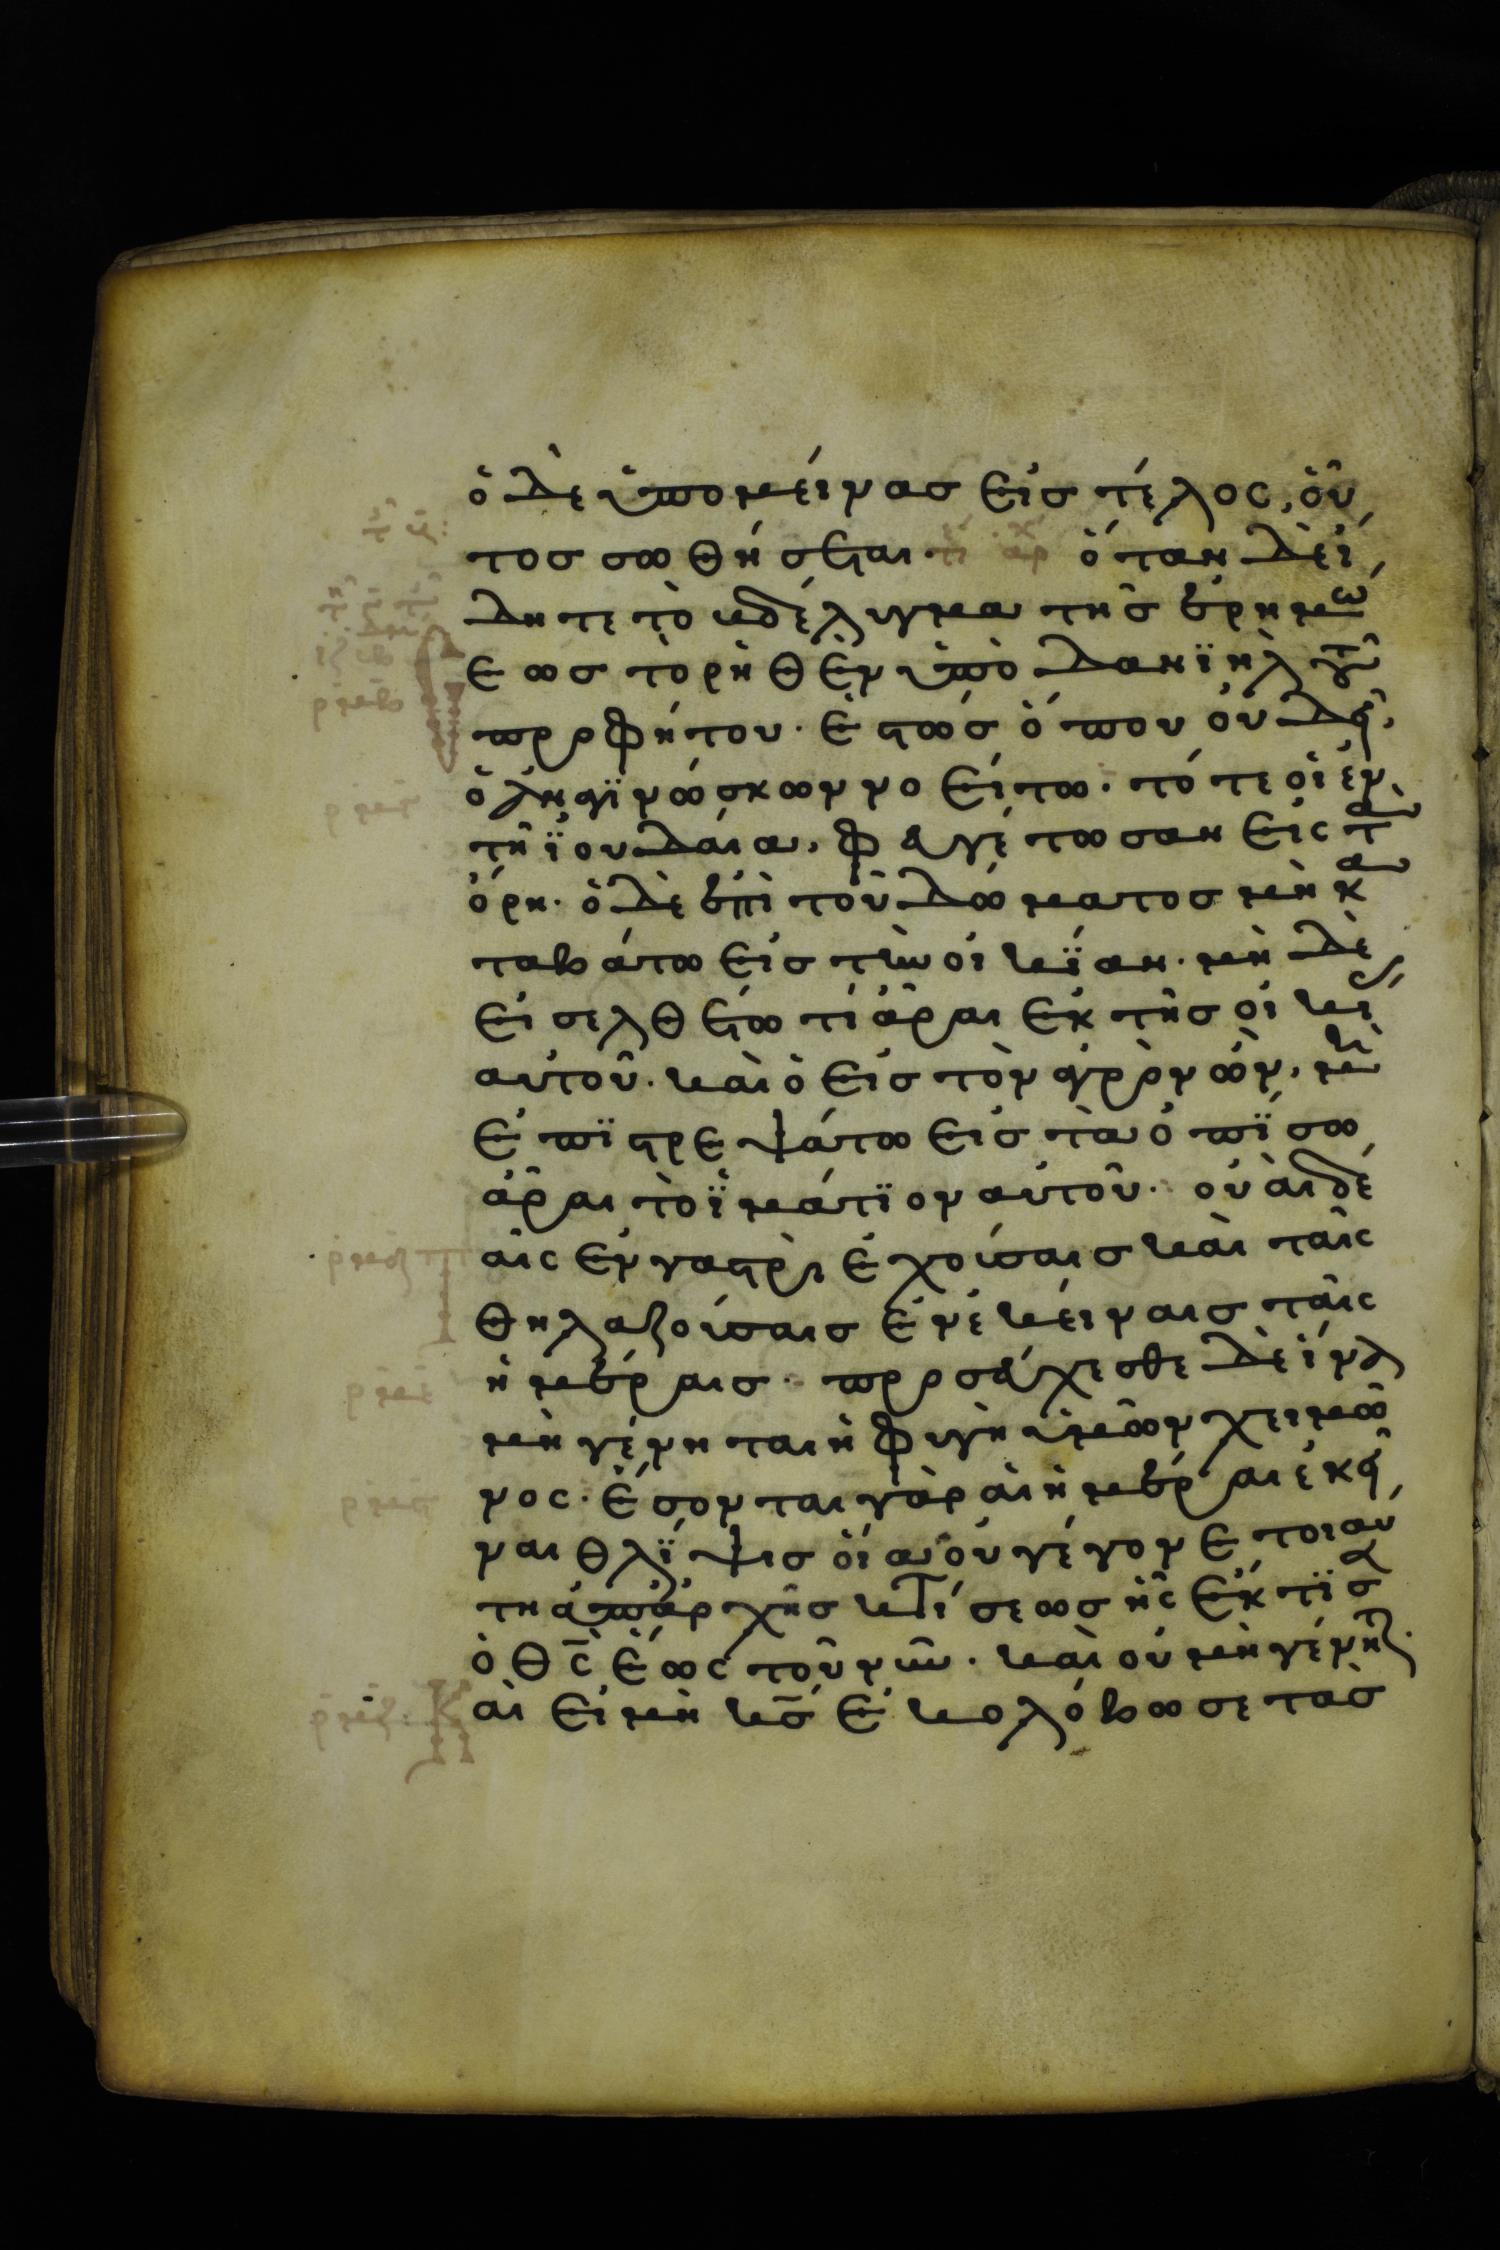 ὁ δὲ ὑπομείνας εἰς τέλος, οὗ
τος σωθήσεται. τέ ἀρχ ὅταν δὲ ἴ
δητε τὸ βδέλυγμα τῆς ἐρημώ
σεως τὸ ῥηθὲν ὑπὸ δανϊὴλ τοῦ
προφήτου. ἑστὼς ὅπου οὐ δεῖ,
ὁ ἀναγϊνώσκων νοείτω. τότε οἱ ἐν
τῇ ϊουδαία, φευγέτωσαν εἰς τὰ
ὄρη. ὁ δὲ ἐπὶ τοῦ δώματος μὴ κα
ταβάτω εἰς τὴν οἰκϊαν. μὴ δὲ
εἰσελθέτω τί ἆραι ἐκ τῆς οἰκίας
αὐτοῦ. καὶ ὁ εἰς τὸν ἀγρὸν ὢν, μὴ
ἐπϊστρεψάτω εἰς τὰ ὀπϊσω
ἆραι τὸ ϊμάτϊον αὐτοῦ. οὐαὶ δὲ
ταῖς ἐν γαστρὶ ἐχούσαις καὶ ταῖς
θηλαζούσαις ἐν ἐκείναις ταῖς
ἡμέραις. προσεύχεσθε δὲ ἵνα
μὴ γένηται ἡ φυγὴ ὑμῶν χειμῶ
νος. ἔσονται γὰρ αἱ ἡμέραι ἐκεῖ
ναι θλϊψις οἵα οὐ γέγονε τοιαύ
τη ἀπ ἀρχῆς κτίσεως ἧς ἔκτϊσεν
ὁ θς ἕως τοῦ νῦν. καὶ οὐ μὴ γένηται
καὶ εἰ μὴ κς ἐκολόβωσε τὰς